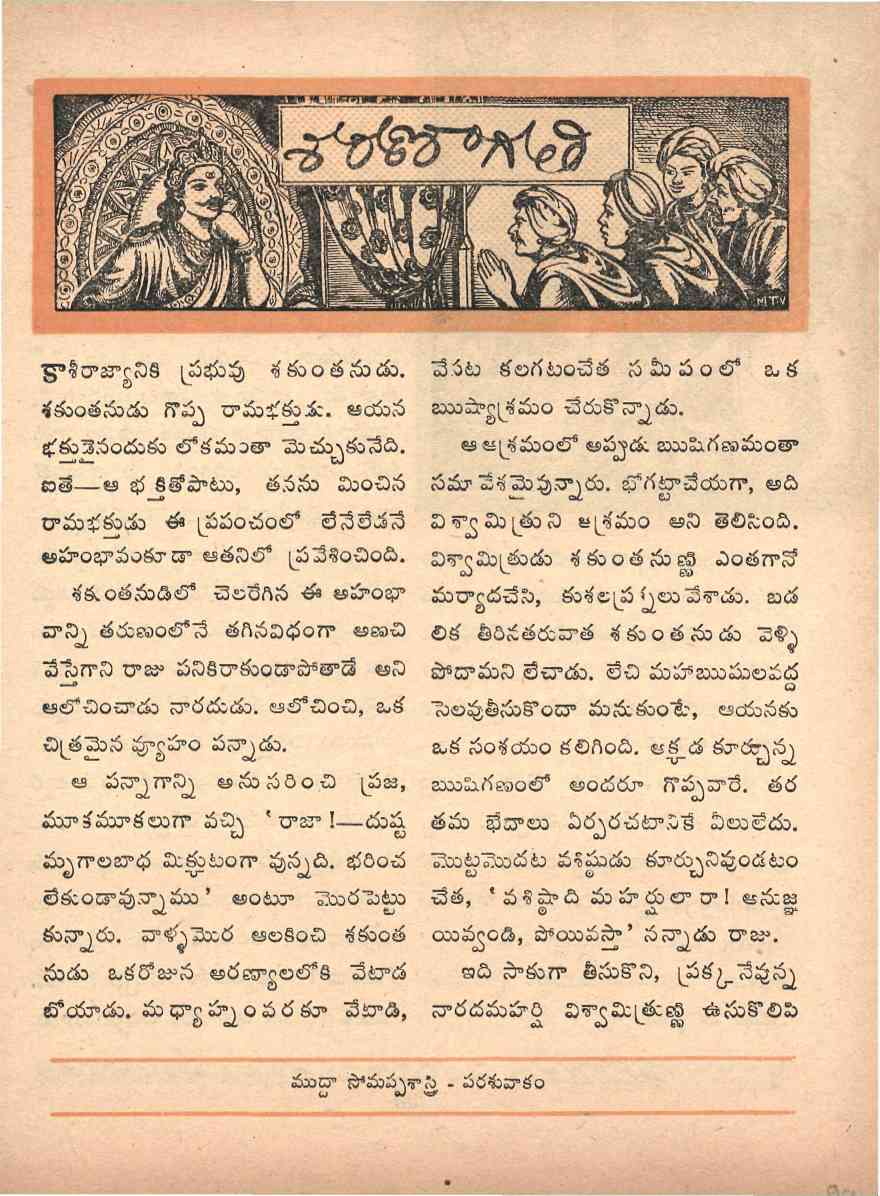 శరణాగతి
కాశీరాజ్యానికి ప్రభువు శకుంతనుడు.
శకుంతనుడు గొప్ప రామభక్తుడు. ఆయన
భక్తుడైనందుకు లోకమంతా మెచ్చుకునేది.
ఐతే—ఆ భక్తితోపాటు, తనను మించిన
రామభక్తుడు ఈ ప్రపంచంలో లేనేలేడనే
అహంభావంకూడా ఆతనిలో ప్రవేశించింది.
శకుంతనుడిలో చెలరేగిన ఈ అహంభా
వాన్ని తరుణంలోనే తగినవిధంగా అణచి
వేస్తేగాని రాజు పనికిరాకుండాపోతాడే అని
ఆలోచించాడు నారదుడు. ఆలోచించి, ఒక
చిత్రమైన వ్యూహం పన్నాడు.
ఆ పన్నాగాన్ని అనుసరించి ప్రజ,
మూకమూకలుగా వచ్చి 'రాజా!—దుష్ట
మృగాలబాధ మిక్కుటంగా వున్నది. భరించ
లేకుండావున్నాము' అంటూ మొరపెట్టు
కున్నారు. వాళ్ళమొర ఆలకించి శకుంత
నుడు ఒకరోజున అరణ్యాలలోకి వేటాడ
బోయాడు. మధ్యాహ్నంవరకూ వేటాడి,
వేసట కలగటంచేత సమీపంలో ఒక
ఋష్యాశ్రమం చేరుకొన్నాడు.
ఆ ఆశ్రమంలో అప్పుడు ఋషిగణమంతా
సమావేశమైవున్నారు. భోగట్టాచేయగా, అది
విశ్వామిత్రుని ఆశ్రమం అని తెలిసింది.
విశ్వామిత్రుడు శకుంతనుణ్ణి ఎంతగానో
మర్యాదచేసి, కుశలప్రశ్నలు వేశాడు. బడ
లిక తీరినతరువాత శకుంతనుడు వెళ్ళి
పోదామని లేచాడు. లేచి మహాఋషులవద్ద
సెలవుతీసుకొందా మనుకుంటే, ఆయనకు
ఒక సంశయం కలిగింది. అక్కడ కూర్చున్న
ఋషిగణంలో అందరూ గొప్పవారే. తర
తమ భేదాలు ఏర్పరచటానికే వీలులేదు.
మొట్టమొదట వశిష్ఠుడు కూర్చునివుండటం
చేత, 'వశిష్ఠాది మహర్షులారా! అనుజ్ఞ
యివ్వండి, పోయివస్తా' నన్నాడు రాజు.
ఇది సాకుగా తీసుకొని, ప్రక్కనేవున్న
నారదమహర్షి విశ్వామిత్రుణ్ణి ఉసుకొలిపి
ముద్దా సోమప్పశాస్త్రి - పరశువాకం
MTV